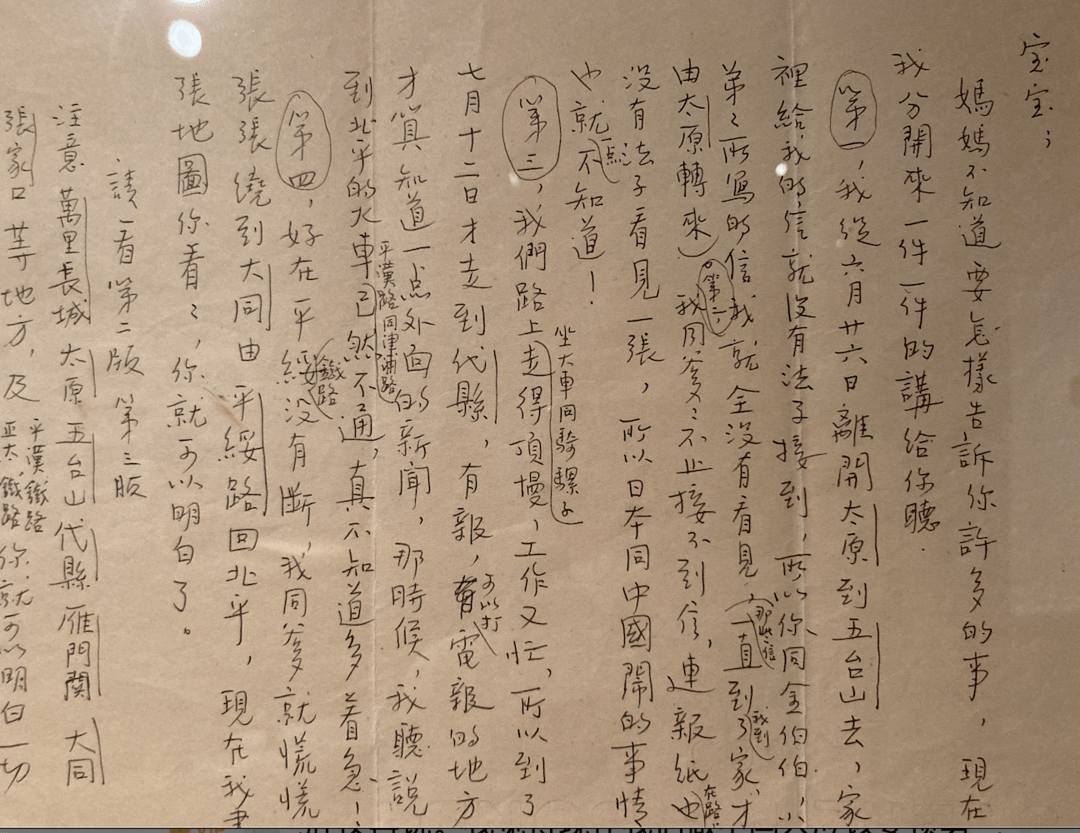 宝宝；
媽媽不知道要怎樣告訴你許多的事，現在
我分開來一件一件的講給你聽．
第一，我從六月廿六日離開太原到五台山去，家
裡給我的信就沒有法子接到，所以你同金伯伯，小
弟弟所寫的信我就全沒有看見，（那些信一直到我到了家，才
由太原轉來）
第二，我同爹爹不止接不到信，連報紙在路上也
沒有法子看見一張，所以日本同中國鬧的事情
也就一点不知道！
第三，我們路上坐大車同騎騾子走得頂慢，工作又忙，所以到了
七月十二日才走到代縣，有報，可以打電報的地方
才算知道一点外面的新聞，那時候，我聽說
到北平的火車平漢路同津浦路已然不通，真不知道多着急！
第四，好在平綏鐵路沒有斷，我同爹爹就慌慌
張張繞到大同由平綏路回北平，現在我畫
張地圖你看看，你就可以明白了。
請看第二版 第三版
注意萬里長城 太原 五台山 代縣 雁門關 大同
張家口等地方，及平漢鐵路 正太鐵路你就可以明白一切